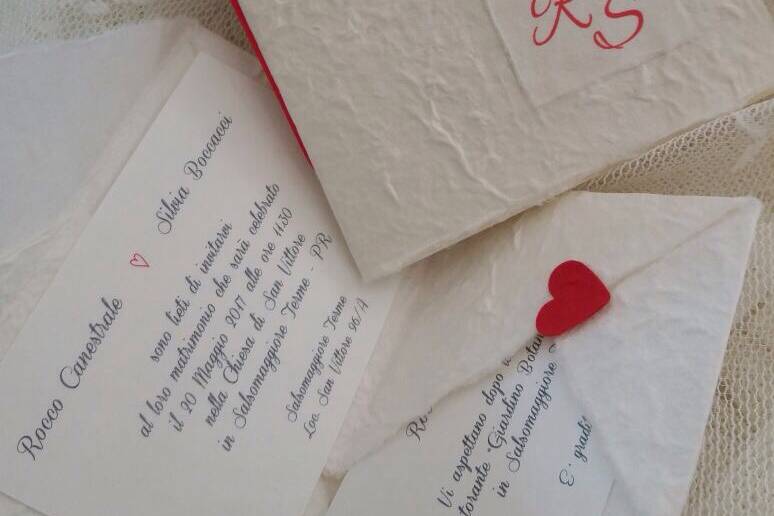 R S
Rocco Canestrale
Silvia Boccacci
sono lieti di invitarvi
al loro matrimonio che sarà celebrato
il 20 Maggio 2017 alle ore 11:30
nella Chiesa di San Vittore
in Salsomaggiore Terme - PR
Salsomaggiore Terme
Loc. San Vittore 96/A
Vi aspettano dopo
"Giardino
in Salsomaggiore
E'